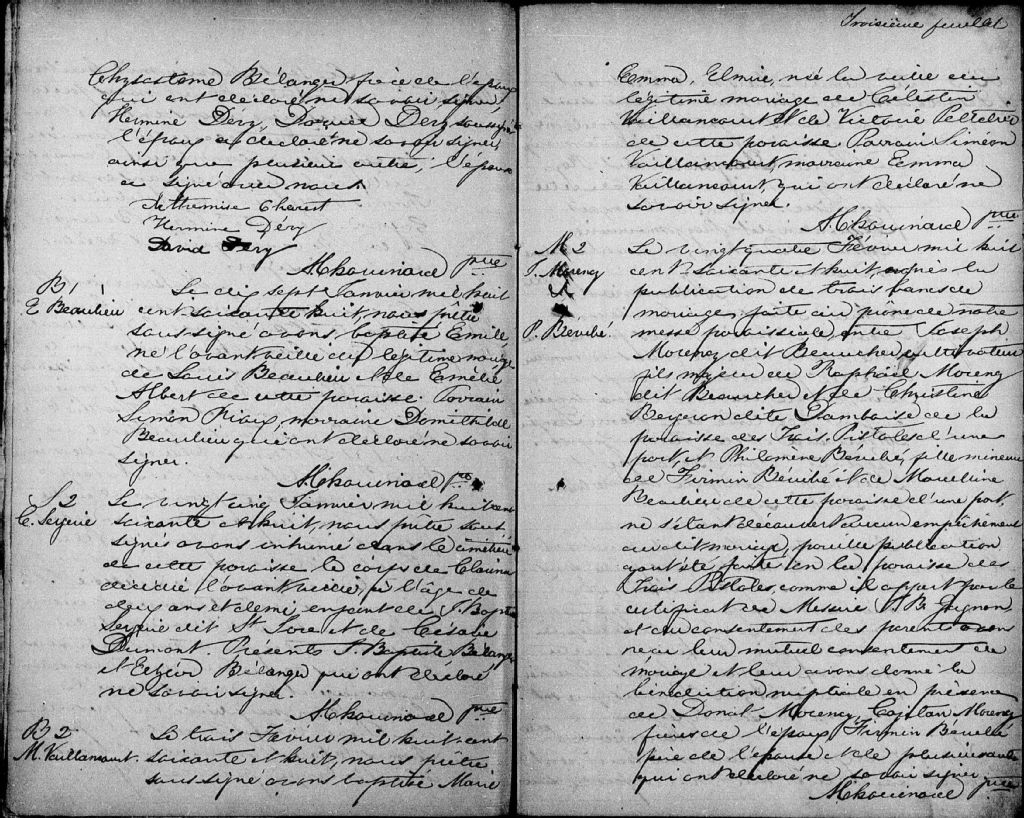 Chrysostome Bélanger père de l'époux
qui ont déclaré ne savoir signer
Hermine Dery, Dery soussignés
l'époux a déclaré ne savoir signer
ainsi que plusieur autre, l'épouse
a signé avec nous.
Arthemise Charest
Hermine Déry
David Dery
A Chouinard ptre
B 1
E Beaulieu
Le dix sept Janvier mil huit
cent soixante & huit, nous prêtre
soussigné avons baptisé Emile,
né l'avant veille du légitime mariage
de Louis Beaulieu & de Emélie
Albert de cette paroisse. Parrain
Simon Rioux, marraine Domithilde
Beaulieu qui ont déclaré ne savoir
signer.
A Chouinard Ptre
S 2
C. Serrurié
Le vingt cinq Janvier mil huit cent
soixante et huit, nous prêtre sous
signés avons inhumé dans le cimetière
de cette paroisse le corps de
décédé l'avant veille, à l'âge de
deux ans et demi, enfant de J. Bapte
dit St Jore et de Césarie
Dumont. Présents J. Baptiste Bélanger
et Elzéar Bélanger qui ont déclaré
ne savoir signer.
A Chouinard ptre
B 2
M. Vaillancourt.
Le trois Février mil huit cent
soixante et huit, nous prêtre
soussigné avons baptisé Marie
Troisième feuillet
Emma, Elmire, née la veille du
légitime mariage de Célestin
Vaillancourt & de Victorie Pelletier
de cette paroisse Parrain Siméon
Vaillancourt, marraine Emma
Vaillancourt, qui ont déclaré ne
savoir signer.
A Chouinard ptre
M 2
J. Morency
&
P. Berubé.
Le vingt quatre Février mil huit
cent soixante et huit, après la
publication de trois bans de
mariage faite au prône de notre
messe paroissiale, entre Joseph
Morency dit Beaucher, cultivateur
fils majeur de Raphaël Morency
dit Beaucher et de Christine
Bergeron dite de la
paroisse des Trois Pistoles d'une
part, et Philomène Berubé, fille mineure
de Firmin Bérubé et de Marcelline
Beaulieu de cette paroisse d'une part,
ne s'étant découvert aucun empêchement
au dit mariage, pareille publication
ayant été faite en la paroisse des
Trois Pistoles, comme il appert par le
certificat de Messire J. B. Gagnon,
et du consentement des parents avons
reçu leur mutuel consentement de
mariage et leur avons donné la
bénédiction nuptiale en présence
de Donat Morency, Capitan Morency
frères de l'époux, Firmin Berubé
père de l'épouse et de plusieurs autre
qui ont déclaré ne savoir signer.
A Chouinard ptre